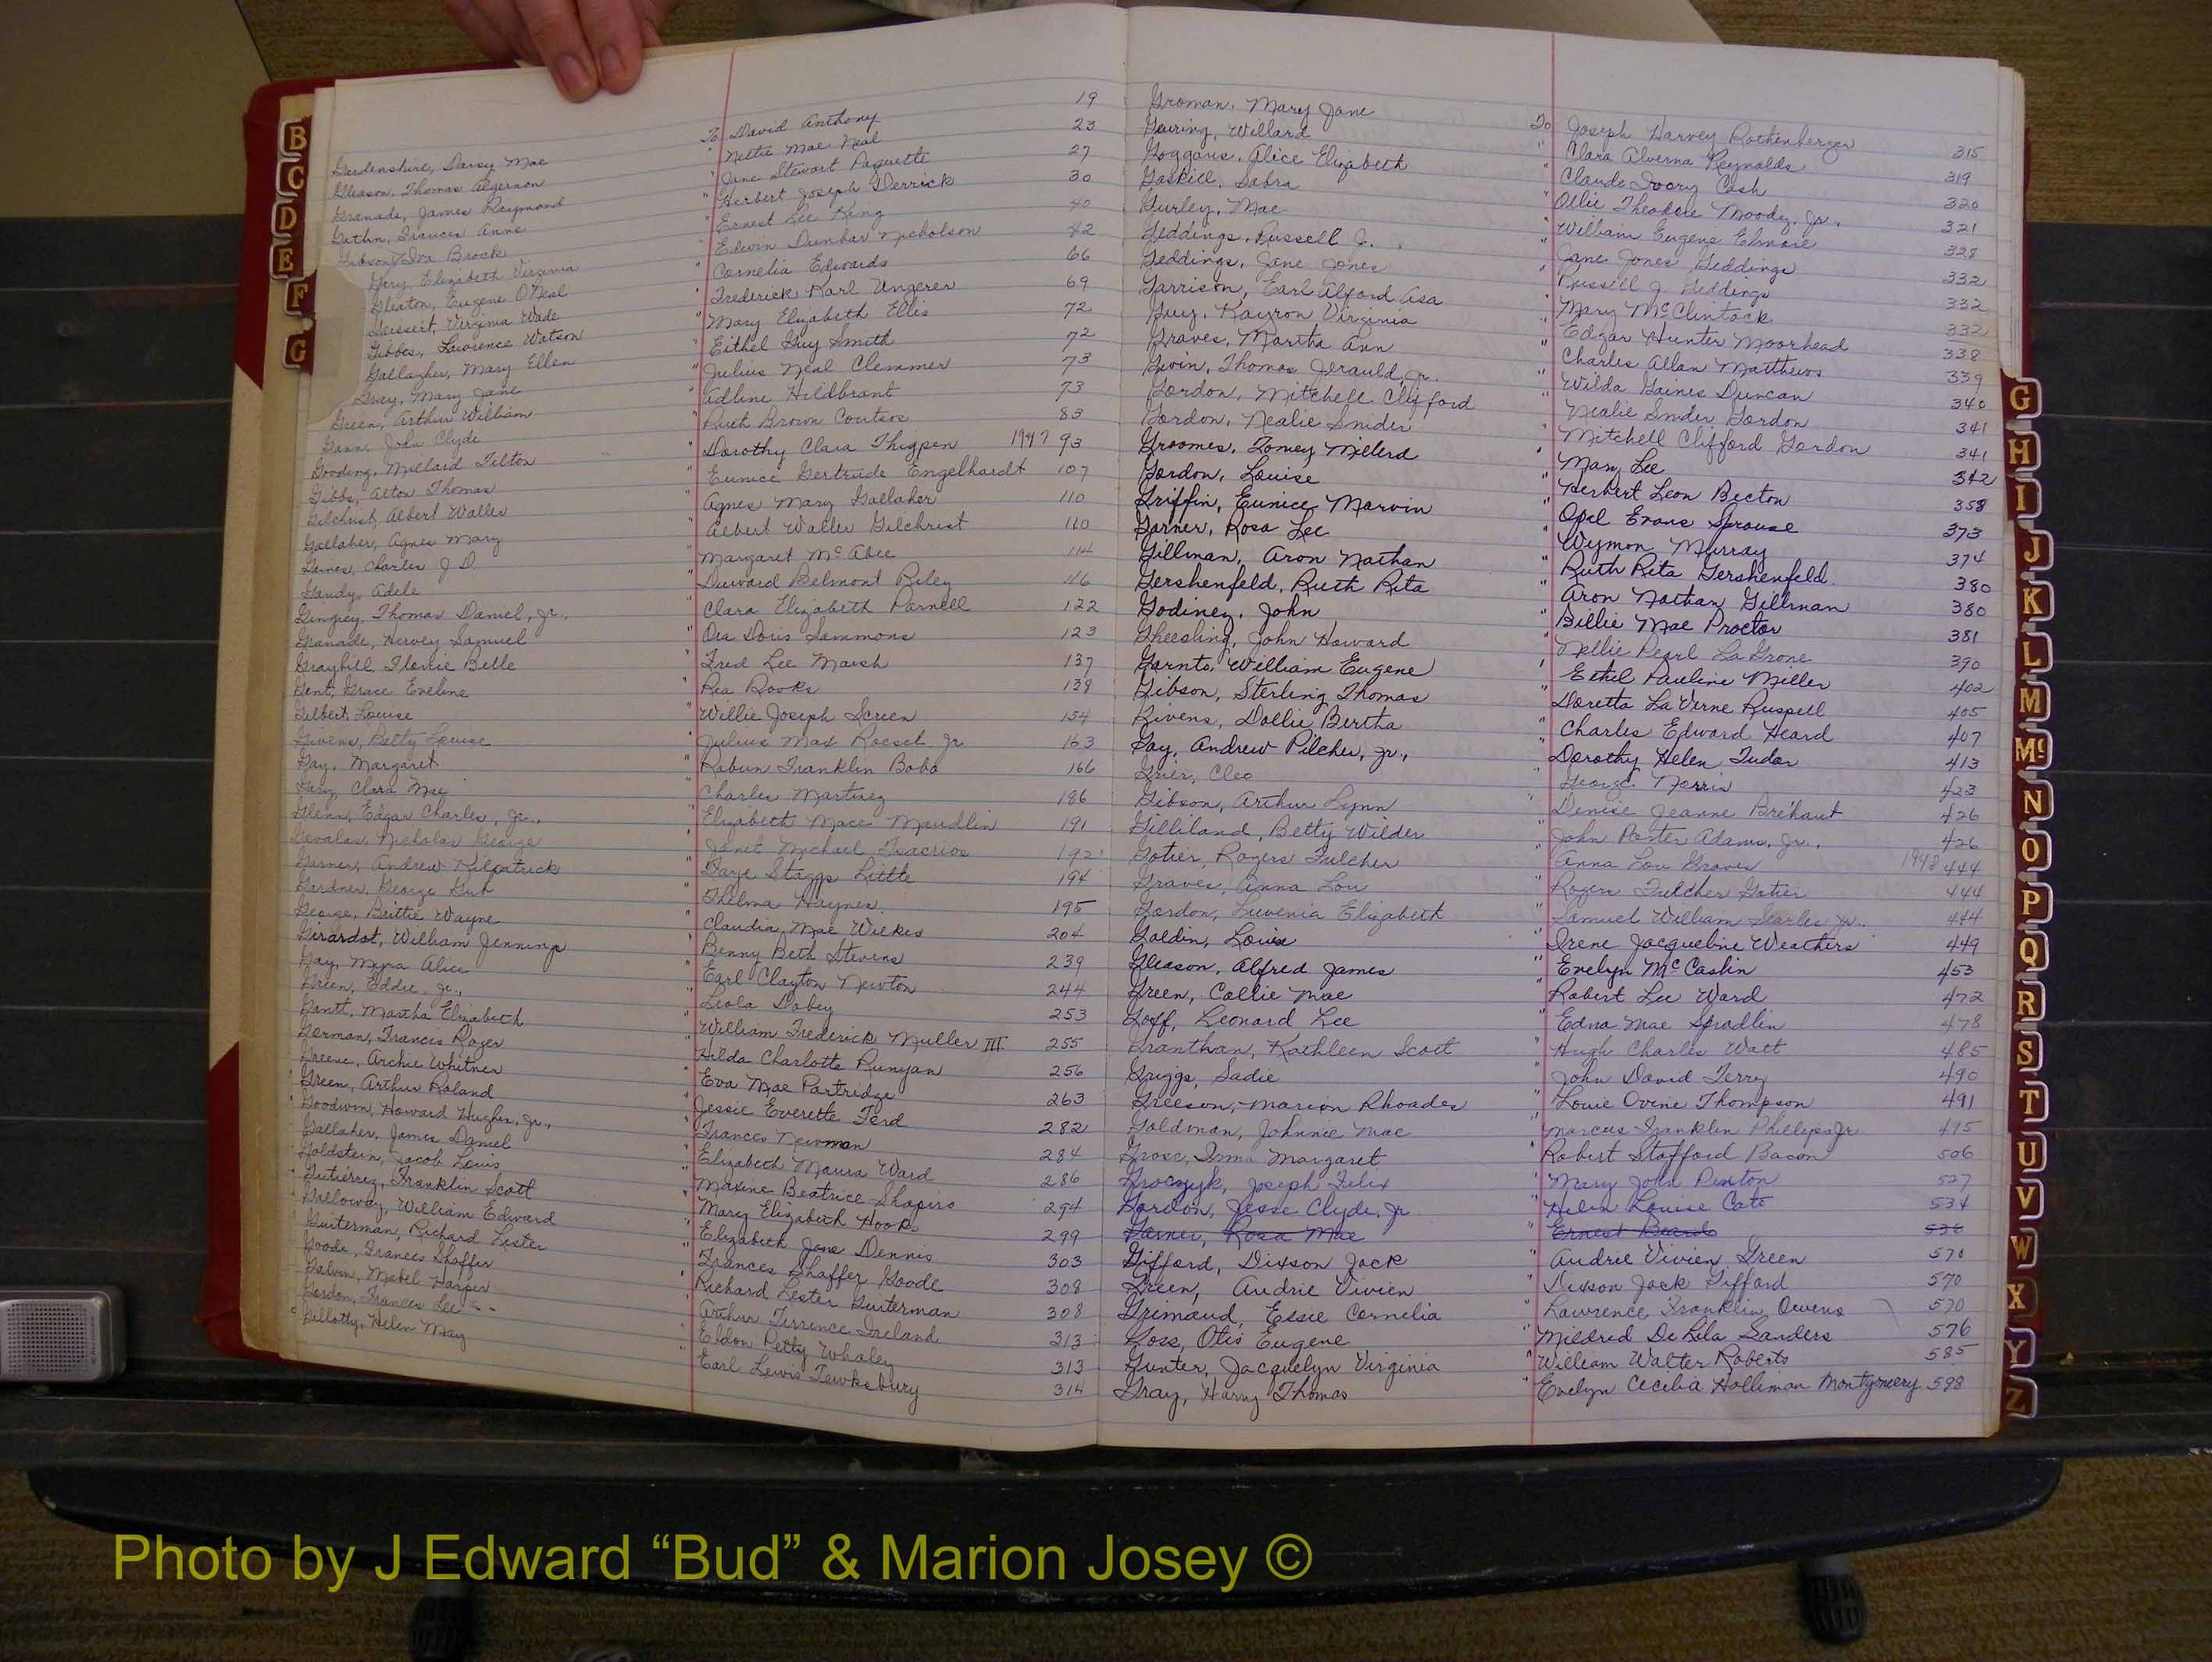 Gerdenshire, Daisy Mae To David Anthony 19
Gleason, Thomas Algernon " Nettie Mae Neal 23
Grenade, James Raymond " Jane Stewart Paquette 27
Frances Anne " Herbert Joseph Derrick 30
Gibson, Iva Brock " Ernest Lee King 40
Gary, Elizabeth Virginia " Edwin Dunbar Nicholson 42
Gleaton, Eugene O'Neal " Cornelia Edwards 66
Gessert, Virginia Wade " Frederick Karl Ungerer 69
Gibbes, Lawrence Watson " Mary Elizabeth Ellis 72
Gallagher, Mary Ellen " Eithel Guy Smith 72
Gray, Mary Jane " Julius Neal Clemmer 73
Green, Arthur William " Adline Hildbrant 73
Gann, John Clyde " Ruth Brown Coutsos 83
Gooding, Millard Tilton " Dorothy Clara Thigpen 1947 93
Gibbs, Alton Thomas " Eunice Gertrude Engelhardt 107
Gilchrist, Albert Waller " Agnes Mary Gallaher 110
Gallaher, Agnes Mary " Albert Waller Gilchrist 110
Gaines, Charles J D " Margaret McAbee 114
Gandy, Adele " Durward Belmont Riley 116
Gingrey, Thomas Daniel, Jr., " Clara Elizabeth Parnell 122
Granade, Hervey Samuel " Ora Doris Sammons 123
Graybill, Florrie Belle " Fred Lee Marsh 137
Gent, Grace Eveline " Rea Rooks 138
Gilbert, Louise " Willie Joseph Screen 154
Givens, Betty Louise " Julius Max Roesel Jr 163
Gay, Margaret " Rabun Franklin Bobo 166
Gary, Clara Mae " Charles Martinez 186
Glenn, Edgar Charles, Jr., " Elizabeth Mace Maudlin 191
Gavalas, Nicholas George " Janet Michael Tsacrios 192
Garner, Andrew Kilpatrick " Faye Staggs Little 194
Gardner, George " Thelma Haynes 195
George, Brittie Wayne " Claudia Mae Wilkes 204
Girardot, William Jennings " Benny Beth Stevens 239
Gay, Myra Alice " Earl Clayton Newton 244
Green, Eddie, Jr., " Leola 253
Gantt, Martha Elizabeth " William Frederick Muller III 255
Gorman, Francis Roger " Hilda Charlotte Runyan 256
Greene, Archie Whitner " Eva Mae Partridge 263
Green, Arthur Roland " Jessie Everette Ford 282
Goodwin, Howard Hughes, Jr., " Frances Newman 284
Gallaher, James Daniel " Elizabeth Maura Ward 286
Goldstein, Jacob Louis " Maxine Beatrice Shapiro 294
Gutierrez, Franklin Scott " Mary Elizabeth Hooks 299
Galloway, William Edward " Elizabeth Jane Dennis 303
Guiterman, Richard Lester " Frances Shaffer Goode 308
Goode, Frances Shaffer " Richard Lester Guiterman 308
Galvin, Mabel Harper " Arthur Terrence Ireland 313
Gordon, Frances Lee " Eldon Petty Whaley 313
Gillotty, Helen May " Earl Lewis Tewksbury 314
Groman, Mary Jane To Joseph Harvey Rothenberger 315
Willard " Clara Alverna Reynolds 319
Goggans, Alice Elizabeth " Claude Ivory Cash 320
Gaskill, Sabra " Ollie Theodore Moody, Jr., 321
Gurley, Mae " William Eugene Elmore 328
Geddings, Russell J. " Jane Jones Geddings 332
Geddings, Jane Jones " Russell J. Geddings 332
Garrison, Earl Alford Asa " Mary McClintock 332
Guy, Kayron Virginia " Edgar Hunter Moorhead 338
Graves, Martha Ann " Charles Allan Matthews 339
Gwin, Thomas Jerauld, Jr. " Wilda Gaines Duncan 340
Gordon, Mitchell Clifford " Nealie Snider Gordon 341
Gordon, Nealie Snider " Mitchell Clifford Gordon 341
Groomes, Tomey Millerd " Mary Lee 342
Gordon, Louise " Herbert Leon Becton 358
Griffin, Eunice Marvin " Opal Evans Sprouse 373
Garner, Rosa Lee " Wymon Murray 374
Gillman, Aron Nathan " Ruth Rita Gershenfeld 380
Gershenfeld, Ruth Rita " Aron Nathan Gillman 380
Godinez, John " Billie Mae Proctor 381
Gheesling, John Howard " Nellie Pearl LaGrone 390
Garnto, William Eugene " Ethel Pauline Miller 402
Gibson, Sterling Thomas " Doretta LaVerne Russell 405
Givens, Dollie Bertha " Charles Edward Heard 407
Gay, Andrew Pilcher, Jr., " Dorothy Helen Tudor 413
Grier, Cleo " George Norris 423
Gibson, Arthur Lynn " Denise Jeanne Bréhaut 426
Gilliland, Betty Wilder " John Porter Adams, Jr., 426
Gotier, Rogers Fulcher " Anna Lou Graves 1948 444
Graves, Anna Lou " Rogers Fulcher Gotier 444
Gordon, Luvenia Elizabeth " Samuel William Searles Jr., 444
Goldin, Louis " Irene Jacqueline Weathers 449
Gleason, Alfred James " Evelyn McCaslin 453
Green, Callie Mae " Robert Lee Ward 472
Goff, Leonard Lee " Edna Mae Spradlin 478
Granthan, Kathleen Scott " Hugh Charles Watt 485
Griggs, Sadie " John David Terry 490
Greeson, Marion Rhoades " Louie Ovine Thompson 491
Goldman, Johnnie Mae " Marcus Franklin Phillips Jr 495
Grose, Irma Margaret " Robert Stafford Bacon 506
Groczyk, Joseph Felix " Mary John Penton 527
Gordon, Jesse Clyde, Jr " Helen Louise Cato 534
Garner, Rosa Mae " Ernest Beard 536
Gifford, Dixson Jack " Audrie Vivien Green 570
Green, Audrie Vivien " Dixson Jack Gifford 570
Grimaud, Essie Cornelia " Lawrence Franklin Owens 570
Goss, Otis Eugene " Mildred De Lila Sanders 576
Gunter, Jacquelyn Virginia " William Walter Roberts 585
Gray, Harry Thomas " Evelyn Cecilia Holliman Montgomery 598
B
C
D
E
F
G
G
H
I
J
K
L
M
Mc
N
O
P
Q
R
S
T
U
V
W
X
Y
Z
Photo by J Edward “Bud” & Marion Josey ©